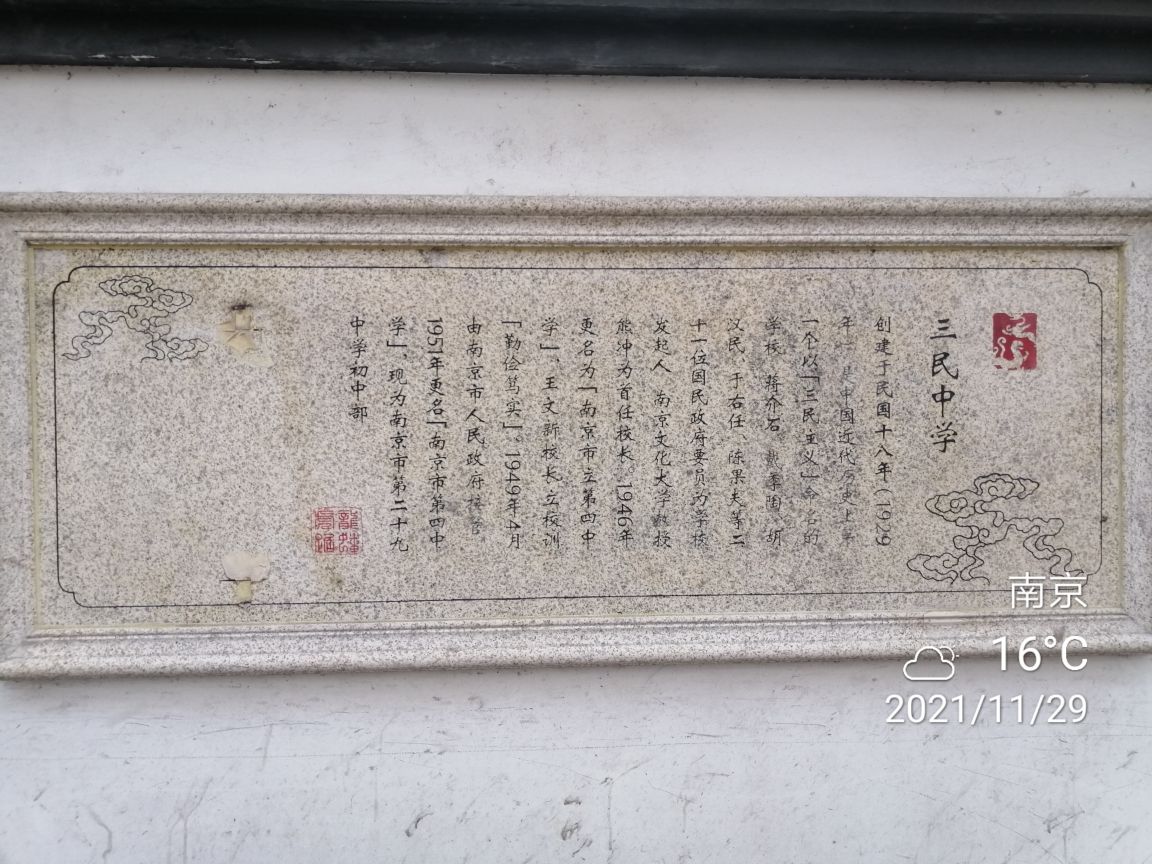 三民中学
创建于民国十八年(1929
年),是中国近代历史上第
一个以「三民主义」命名的
学校、蒋介石、戴季陶、胡
汉民、于右任、陈果夫等二
十一位国民政府要员为学校
发起人、南京文化大学教授
熊冲为首任校长、1946年
更名为「南京市立第四中
学」、王文新校长立校训
「勤俭笃实」、1949年4月
由南京市人民政府接管
1951年更名「南京市第四中
学」、现为南京市第二十九
中学初中部
南京
16°C
2021/11/29